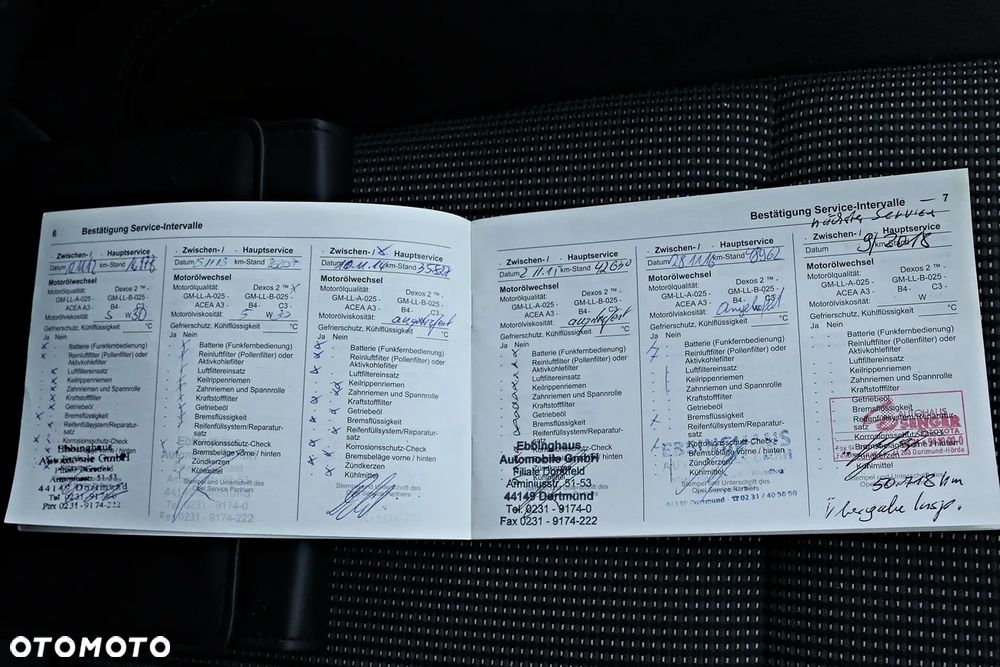 6 Bestätigung Service-Intervalle
Zwischen- / - Hauptservice
Datum km-Stand
Motorölwechsel
Motorölqualität: Dexos 2 ™ -
GM-LL-A-025 - GM-LL-B-025 -
ACEA A3 - B4- C3 -
Motorölviskosität: 5 W 30
Gefrierschutz, Kühlflüssigkeit °C
Ja Nein
Batterie (Funkfernbedienung)
Reinluftfilter (Pollenfilter) oder
Aktivkohlefilter
Luftfiltereinsatz
Keilrippenriemen
Zahnriemen und Spannrolle
Kraftstofffilter
Getriebeöl
Bremsflüssigkeit
Reifenfüllsystem/Reparatur-
satz
Korrosionsschutz-Check
Ebbinghaus
Automobile GmbH
Filiale Dorstfeld
Arminiusstr. 51-53
44149 Dortmund
Tel. 0231 - 9174-0
Fax 0231 - 9174-222
Zwischen- / - Hauptservice
Datum km-Stand
Motorölwechsel
Motorölqualität: Dexos 2 ™ - X
GM-LL-A-025 - GM-LL-B-025 -
ACEA A3 - B4- C3 -
Motorölviskosität: 5 W 30
Gefrierschutz, Kühlflüssigkeit °C
Ja Nein
Batterie (Funkfernbedienung)
Reinluftfilter (Pollenfilter) oder
Aktivkohlefilter
Luftfiltereinsatz
Keilrippenriemen
Zahnriemen und Spannrolle
Kraftstofffilter
Getriebeöl
Bremsflüssigkeit
Reifenfüllsystem/Reparatur-
satz
Korrosionsschutz-Check
Bremsbeläge vorne / hinten
Zündkerzen
Kühlmittel
Stempel und Unterschrift des
Opel Service Partners
Fax 0231 - 9174-222
Zwischen- / X - Hauptservice
Datum 10.11.14 km-Stand 35827
Motorölwechsel
Motorölqualität: Dexos 2 ™ -
GM-LL-A-025 - GM-LL-B-025 -
ACEA A3 - B4- C3 -
Motorölviskosität: angeliefert
Gefrierschutz, Kühlflüssigkeit °C
Ja Nein
Batterie (Funkfernbedienung)
Reinluftfilter (Pollenfilter) oder
Aktivkohlefilter
Luftfiltereinsatz
Keilrippenriemen
Zahnriemen und Spannrolle
Kraftstofffilter
Getriebeöl
Bremsflüssigkeit
Reifenfüllsystem/Reparatur-
satz
Korrosionsschutz-Check
Bremsbeläge vorne / hinten
Zündkerzen
Kühlmittel
Stempel und Unterschrift des
Opel Service Partners
Bestätigung Service-Intervalle 7
Zwischen- / - Hauptservice
Datum km-Stand 42650
Motorölwechsel
Motorölqualität: Dexos 2 ™ -
GM-LL-A-025 - GM-LL-B-025 -
ACEA A3 - B4- C3 -
Motorölviskosität: angeliefert
Gefrierschutz, Kühlflüssigkeit °C
Ja Nein
Batterie (Funkfernbedienung)
Reinluftfilter (Pollenfilter) oder
Aktivkohlefilter
Luftfiltereinsatz
Keilrippenriemen
Zahnriemen und Spannrolle
Kraftstofffilter
Getriebeöl
Bremsflüssigkeit
Reifenfüllsystem/Reparatur-
satz
Ebbinghaus
Automobile GmbH
Filiale Dorstfeld
Arminiusstr. 51-53
44149 Dortmund
Tel. 0231 - 9174-0
Fax 0231 - 9174-222
Zwischen- / - Hauptservice
Datum 28.11.16 km-Stand 48962
Motorölwechsel
Motorölqualität: Dexos 2 ™ -
GM-LL-A-025 - GM-LL-B-025 -
ACEA A3 - B4- C3 -
Motorölviskosität: angeliefert
Gefrierschutz, Kühlflüssigkeit °C
Ja Nein
Batterie (Funkfernbedienung)
Reinluftfilter (Pollenfilter) oder
Aktivkohlefilter
Luftfiltereinsatz
Keilrippenriemen
Zahnriemen und Spannrolle
Kraftstofffilter
Getriebeöl
Bremsflüssigkeit
Reifenfüllsystem/Reparatur-
satz
Korrosionsschutz-Check
Bremsbeläge vorne / hinten
Zündkerzen
Kühlmittel
Stempel und Unterschrift des
Opel Service Partners
nächster Service
Zwischen- / - Hauptservice
Datum 9/2018 km-Stand
Motorölwechsel
Motorölqualität: Dexos 2 ™ -
GM-LL-A-025 - GM-LL-B-025 -
ACEA A3 - B4- C3 -
Motorölviskosität: W
Gefrierschutz, Kühlflüssigkeit °C
Ja Nein
Batterie (Funkfernbedienung)
Reinluftfilter (Pollenfilter) oder
Aktivkohlefilter
Luftfiltereinsatz
Keilrippenriemen
Zahnriemen und Spannrolle
Kraftstofffilter
Getriebeöl
Bremsflüssigkeit
Reifenfüllsystem/Reparatur-
satz
AUTOHAUS
SENGER
Dortmund-Hörde
Kühlmittel
50.718 km
Übergabe Insp.
OTOMOTO